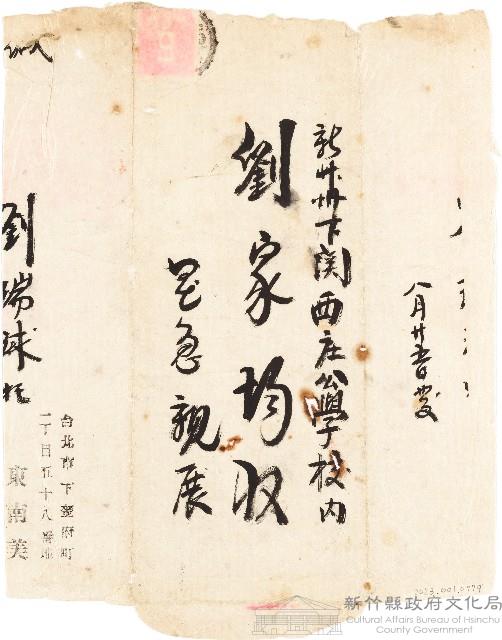 八月廿五日發
新竹州下関西庄公學校内
劉家均収
至急親展
劉瑞球
台北市下奎府町
一丁目五十八番地
東南美
2023.001.0779
新竹縣政府文化局
Cultural Affairs Bureau of Hsinchu
County Government